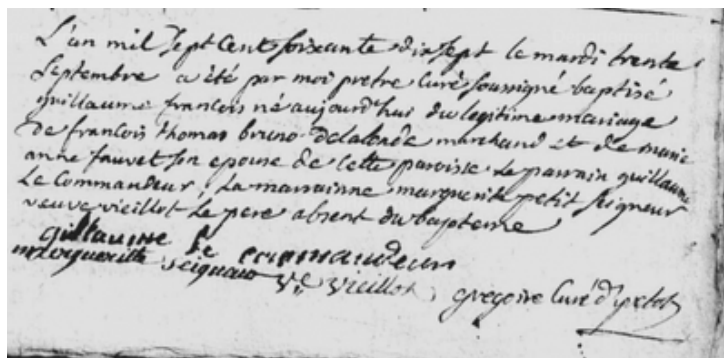 L'an mil sept cent soixante dix sept le mardi trente
Septembre a été par moi pretre Curé soussigné baptisé
guillaume francois né aujourd'hui du legitime mariage
de francois thomas bruno delalande marchand et de marie
anne fauvel son epouse de cette paroisse le parrain guillaume
Le Commandeur, la marrainne marguerite petit seigneur
veuve vieillot le pere absent du bapteme
guillaume le commandeur
margueritte seigneur Ve vieillot, gregoire Curé d'yvetot